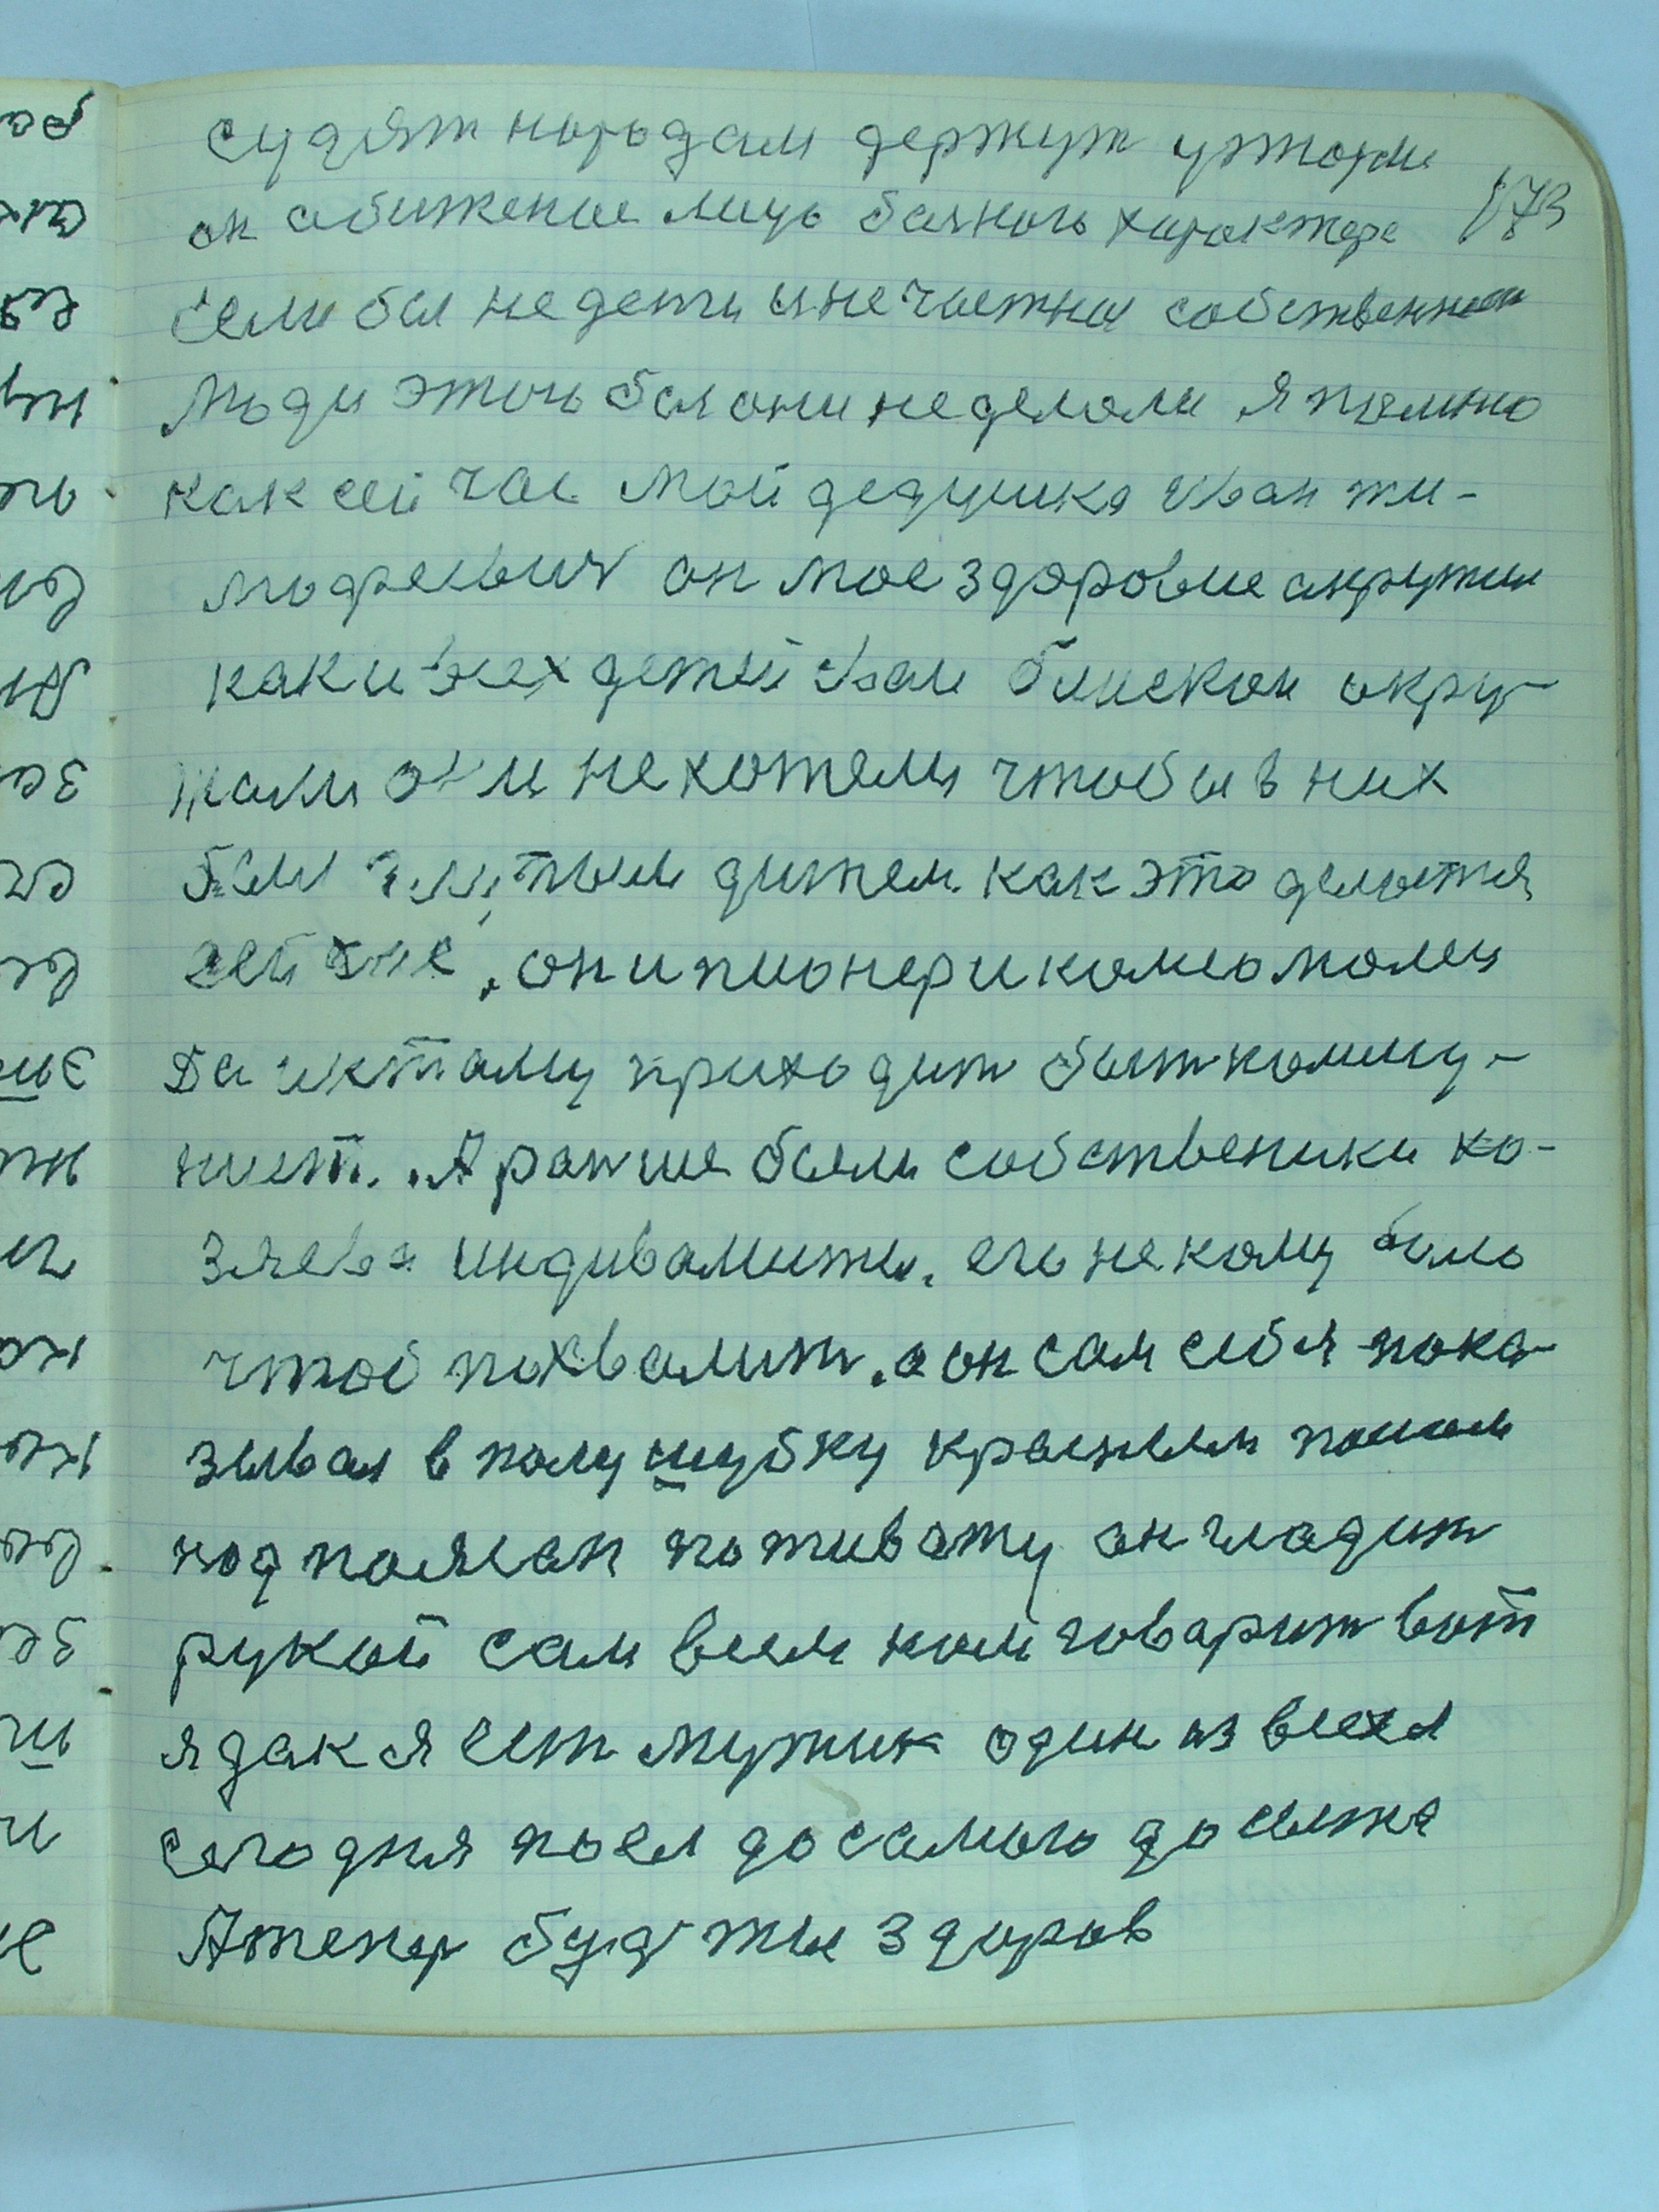 судят народам держут у тюрме
он обиженое лицо баяного характера 173
Если бы не дети и не частна собственник
люди этого бы они неделоли я помню
как сей час мой дедушка Иван ти-
мофеевич он мое здоровие окружил
как и всех детей Вам блиском окру-
жали они не хотели чтобы в них
был дитем как это делается
сейчас, они пионери комсомолец
Да и ктому приходит быт комму-
нист. А ранше были собственики хо-
зяева индивалисты, его некому было
чтоб похвалит, а он сам себя пока-
зывал в полушубку красным поясом
подпоясан по животу он гладит
рукой сам всем ком говарит вот
я дак я ест мужик один из всех
сегодня поел до самого до сыта
А тепер буд ты здоров